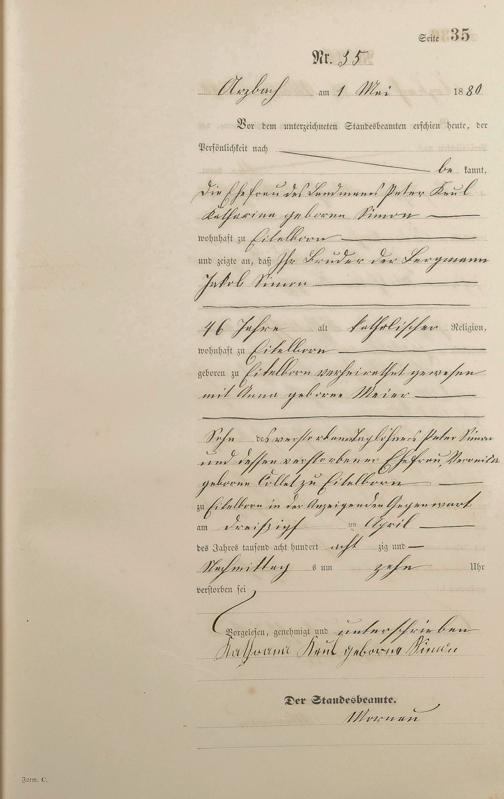 Seite 35
Nr. 35
Arzbach am 1 Mai 1880
Vor dem unterzeichneten Standesbeamten erschien heute, der
Persönlichkeit nach
be kannt,
die Ehefrau des Landmanns Peter Keul
Katharina geborne Simon
wohnhaft zu Eitelborn
und zeigte an, daß Ihr Bruder der Bergmann
Jakob Simon
46 Jahre alt katholischer Religion,
wohnhaft zu Eitelborn
geboren zu Eitelborn verheirathet gewesen
mit Anna geborne Meier
Sohn des verstorbenen Taglöhners Peter Simon
und dessen verstorbener Ehefrau Veronika
geborne Collet zu Eitelborn
zu Eitelborn in der Anzeigenden Gegenwart
am dreißigst en April
des Jahres tausend acht hundert acht zig und
Nachmittag s um zehn Uhr
verstorben sei
Vorgelesen, genehmigt und unterschrieben
Keul geborne Simon
Der Standesbeamte.
Form. C.